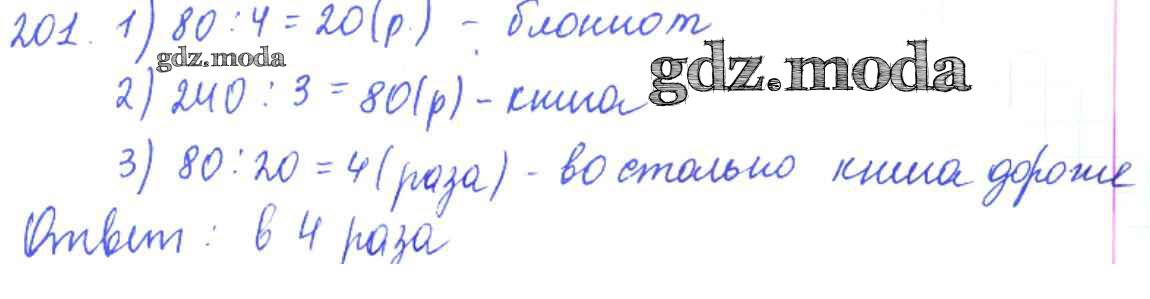 201. 1) 80 : 4 = 20 (р.) - блокнот
gdz.moda
gdz.moda
2) 240 : 3 = 80 (р) - книга
3) 80 : 20 = 4 (раза) - во столько книга дороже
Ответ: в 4 раза